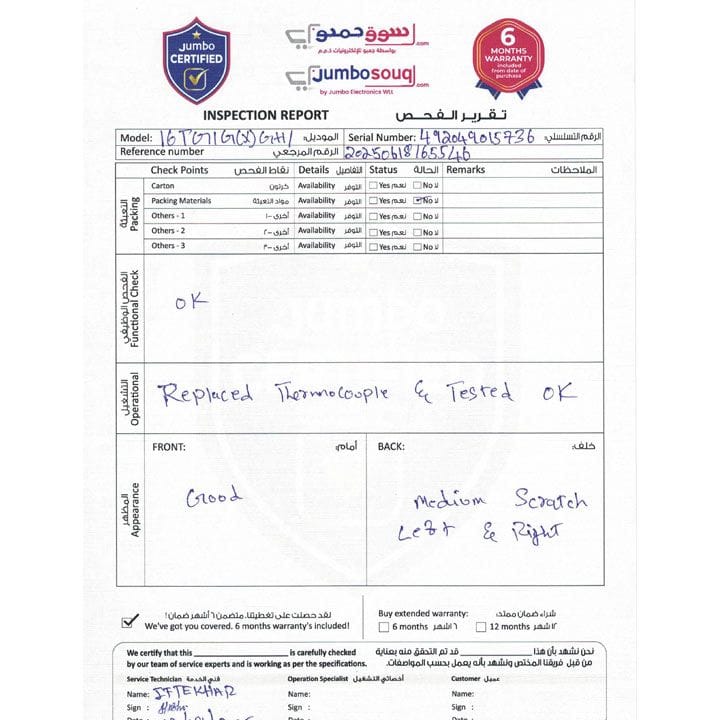 Jumbo
CERTIFIED
سوق جمبو.com
بواسطة جمبو للإلكترونيات ذ.م.م
Jumbosouq.com
by Jumbo Electronics Wll
6
MONTHS
WARRANTY
included
from date of
purchase
INSPECTION REPORT تقرير الفحص
Model: الموديل: Serial Number: 492049015736 الرقم التسلسلي:
Reference number الرقم المرجعي 20250618165546
Check Points نقاط الفحص Details التفاصيل Status الحالة Remarks الملاحظات
التعبئة Packing
Carton كرتون Availability التوفر Yes نعم No لا
Packing Materials مواد التعبئة Availability التوفر Yes نعم No لا
Others - 1 أخرى -١ Availability التوفر Yes نعم No لا
Others - 2 أخرى -٢ Availability التوفر Yes نعم No لا
Others - 3 أخرى -٣ Availability التوفر Yes نعم No لا
الفحص الوظيفي Functional Check
OK
التشغيل Operational
Replaced Thermocouple & Tested OK
المظهر Appearance
FRONT: أمام: BACK: خلف:
Good
Medium Scratch
Left & Right
لقد حصلت على تغطيتنا. متضمن ٦ أشهر ضمان!
We've got you covered. 6 months warranty's included!
Buy extended warranty: شراء ضمان ممتد:
6 months ٦ اشهر 12 months ١٢ شهر
We certify that this is carefully checked
by our team of service experts and is working as per the specifications.
نحن نشهد بأن هذا قد تم التحقق منه بعناية
من قبل فريقنا المختص ونشهد بأنه يعمل بحسب المواصفات.
Service Technician فني الخدمة Operation Specialist أخصائي التشغيل Customer عميل
Name: IFTEKHAR Name: Name:
Sign : Sign : Sign :